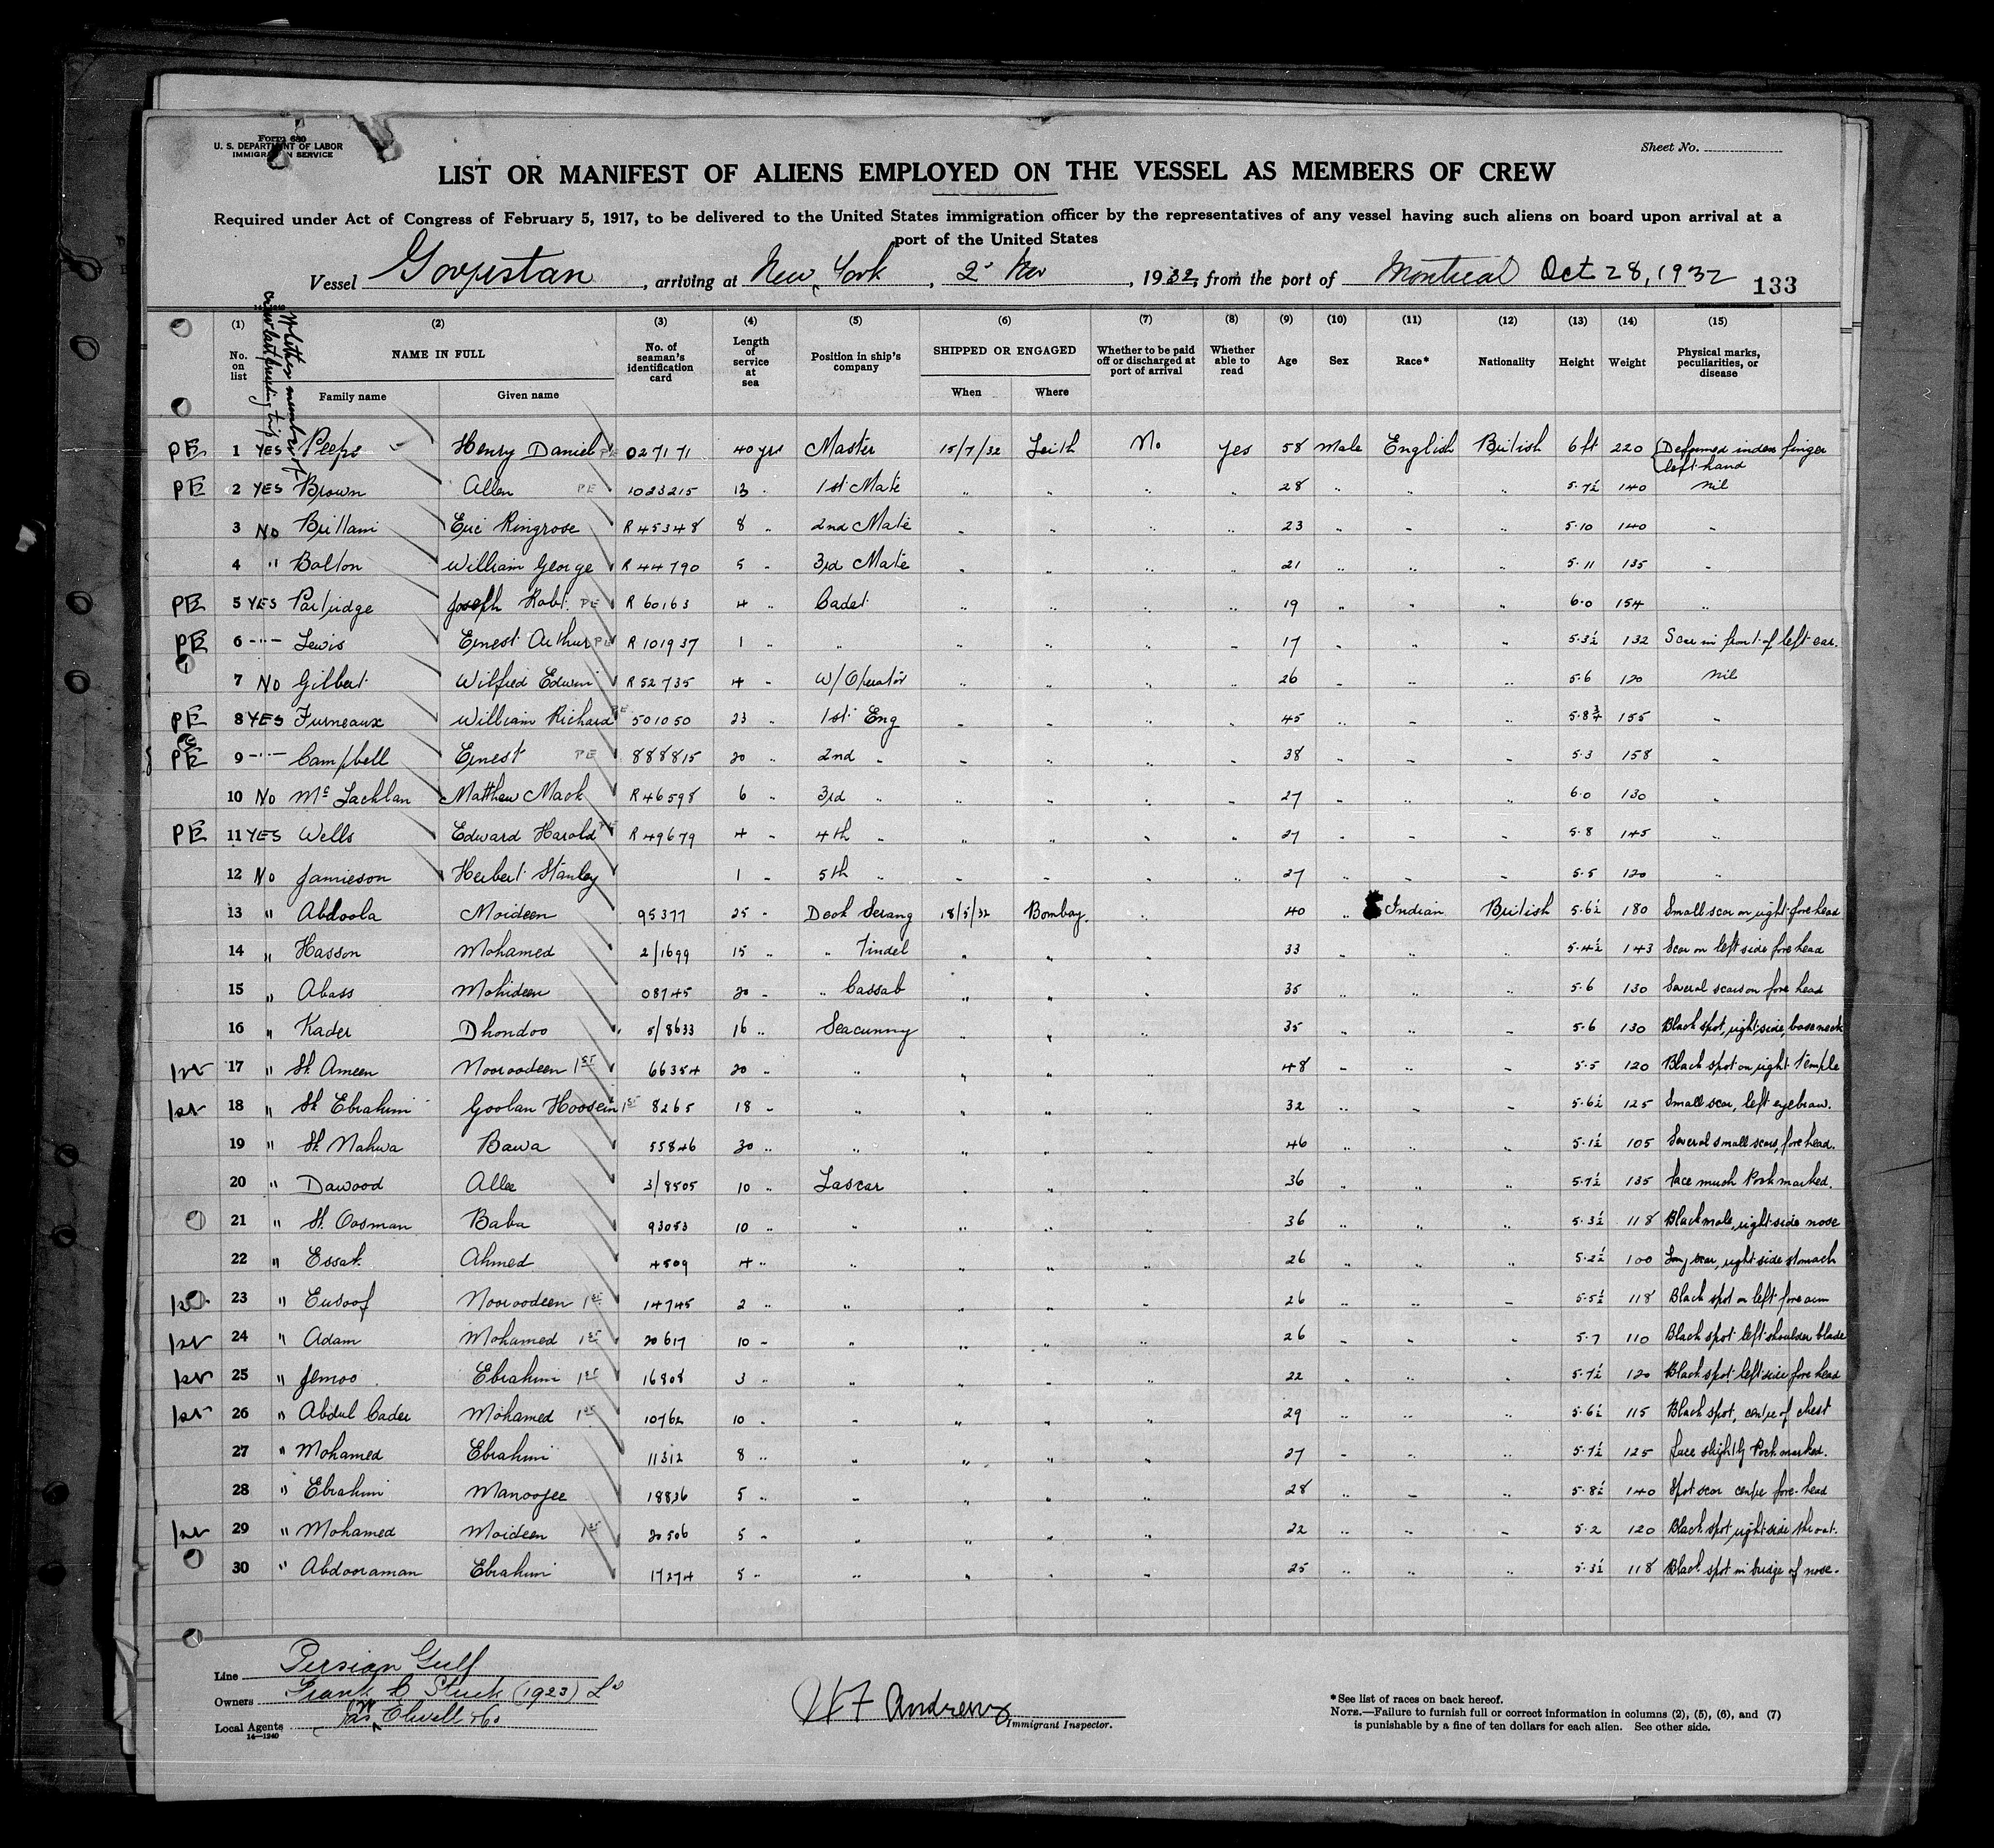 Form 680
U. S. DEPARTMENT OF LABOR
IMMIGRATION SERVICE
Sheet No.
LIST OR MANIFEST OF ALIENS EMPLOYED ON THE VESSEL AS MEMBERS OF CREW
Required under Act of Congress of February 5, 1917, to be delivered to the United States immigration officer by the representatives of any vessel having such aliens on board upon arrival at a
port of the United States
Vessel Goryistan, arriving at New York, 2d Nov, 1932, from the port of Montreal Oct 28, 1932 133
(1) (2) (3) (4) (5) (6) (7) (8) (9) (10) (11) (12) (13) (14) (15)
No. on list Whether member of crew last trip NAME IN FULL Family name Given name No. of seaman's identification card Length of service at sea Position in ship's company SHIPPED OR ENGAGED When Where Whether to be paid off or discharged at port of arrival Whether able to read Age Sex Race* Nationality Height Weight Physical marks, peculiarities, or disease
PE 1 YES Peeps Henry Daniel PE 027171 40 yrs Master 15/7/32 Leith No Yes 58 Male English British 6 ft 220 Deformed index finger left hand
PE 2 YES Brown Allen PE 1023215 13 " 1st Mate " " " " 28 " " " 5.7½ 140 nil
3 No Brittain Eric Ringrose R 45348 8 " 2nd Mate " " " " 23 " " " 5.10 140 "
4 " Bolton William George R 44790 5 " 3rd Mate " " " " 21 " " " 5.11 135 "
PE 5 YES Partridge Joseph Robt. PE R 60163 4 " Cadet " " " " 19 " " " 6.0 154 "
PE 6 " Lewis Ernest Arthur PE R 101937 1 " " " " " " 17 " " " 5.3½ 132 Scar in front of left ear.
7 No Gilbert Wilfred Edwin R 52735 4 " W/Operator " " " " 26 " " " 5.6 120 nil
PE 8 YES Furneaux William Richard PE 501050 23 " 1st Eng " " " " 45 " " " 5.8¾ 155 "
PE 9 " Campbell Ernest PE 888815 20 " 2nd " " " " " 38 " " " 5.3 158 "
10 No Mc Lachlan Matthew Mack R 46598 6 " 3rd " " " " " 27 " " " 6.0 130 "
PE 11 YES Wells Edward Harold PE R 49679 4 " 4th " " " " " 27 " " " 5.8 145 "
12 No Jamieson Herbert Stanley 1 " 5th " " " " " 27 " " " 5.5 120 "
13 " Abdoola Moideen 95377 25 " Deck Serang 18/5/32 Bombay " 40 " Indian British 5.6½ 180 Small scar on right forehead
14 " Hasson Mohamed 2/1699 15 " " Tindel " " " 33 " " " 5.4½ 143 Scar on left side fore head
15 " Abass Mohideen 08745 20 " " Cassab " " " 35 " " " 5.6 130 Several scars on fore head
16 " Kader Dhondoo 5/8633 16 " Seacunny " " " 35 " " " 5.6 130 Black spot, right side, base neck
1st 17 " Sk. Ameen Nooroodeen 1st 66354 20 " " " " " 48 " " " 5.5 120 Black spot on right temple
1st 18 " Sk Ebrahim Goolan Hoosein 1st 8265 18 " " " " " 32 " " " 5.6½ 125 Small scar, left eyebraw.
19 " Sk. Nahwa Bawa 55846 30 " " " " " 46 " " " 5.1½ 105 Several small scars, fore head.
20 " Dawood Allee 3/8505 10 " Lascar " " " 36 " " " 5.7½ 135 Face much Pock marked.
21 " Sk. Oosman Baba 93053 10 " " " " " 36 " " " 5.3½ 118 Black mole, right side nose
22 " Essak Ahmed 4509 4 " " " " " 26 " " " 5.2½ 100 Long scar, right side stomach
1st 23 " Eusoof Nooroodeen 1st 14745 2 " " " " " 26 " " " 5.5½ 118 Black spot on left fore arm
1st 24 " Adam Mohamed 1st 20617 10 " " " " " 26 " " " 5.7 110 Black spot left shoulder blade
1st 25 " Jemoo Ebrahim 1st 16808 3 " " " " " 22 " " " 5.7½ 120 Black spot left side fore head
1st 26 " Abdul Cader Mohamed 1st 10762 10 " " " " " 29 " " " 5.6½ 115 Black spot, centre of chest
27 " Mohamed Ebrahim 11312 8 " " " " " 27 " " " 5.7½ 125 face slightly Pock marked.
28 " Ebrahim Manoojee 18836 5 " " " " " 28 " " " 5.8½ 140 Spot scar centre fore-head
1st 29 " Mohamed Moideen 1st 20506 5 " " " " " 22 " " " 5.2 120 Black spot right side throat.
30 " Abdooraman Ebrahim 17274 5 " " " " " 25 " " " 5.3½ 118 Black spot on bridge of nose.
Line Persian Gulf
Owners Frank C Strick (1923) Ld
Local Agents Jas W Elwell & Co
14—1240
W F Andrews
Immigrant Inspector.
*See list of races on back hereof.
NOTE.—Failure to furnish full or correct information in columns (2), (5), (6), and (7)
is punishable by a fine of ten dollars for each alien. See other side.